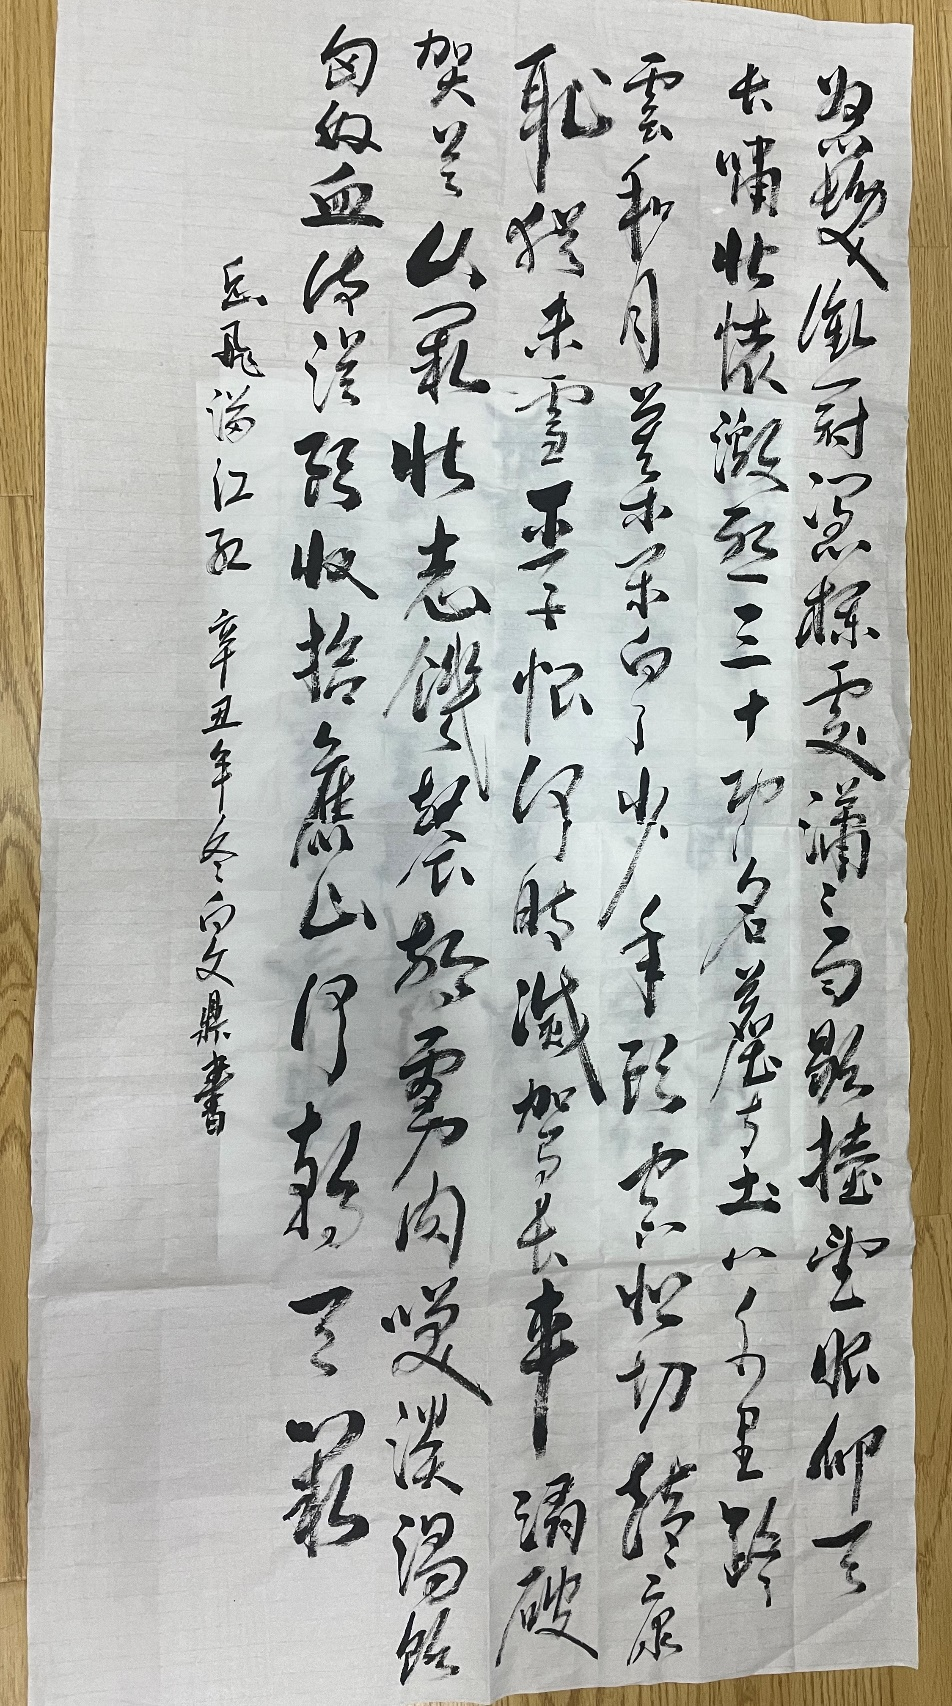 怒髮衝冠憑欄處瀟〻雨歇擡望眼仰天
長嘯壯懷激烈三十功名塵與土八千里路
雲和月莫等閑白了少年頭空悲切靖康
恥猶未雪臣子恨何時滅駕長車踏破
賀蘭山缺壯志饑餐胡虜肉笑談渴飲
匈奴血待從頭收拾舊山河朝天闕
岳飛滿江紅 辛丑年冬向文鼎書